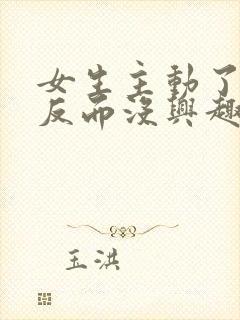 女生主動了
反而沒興趣
玉洪